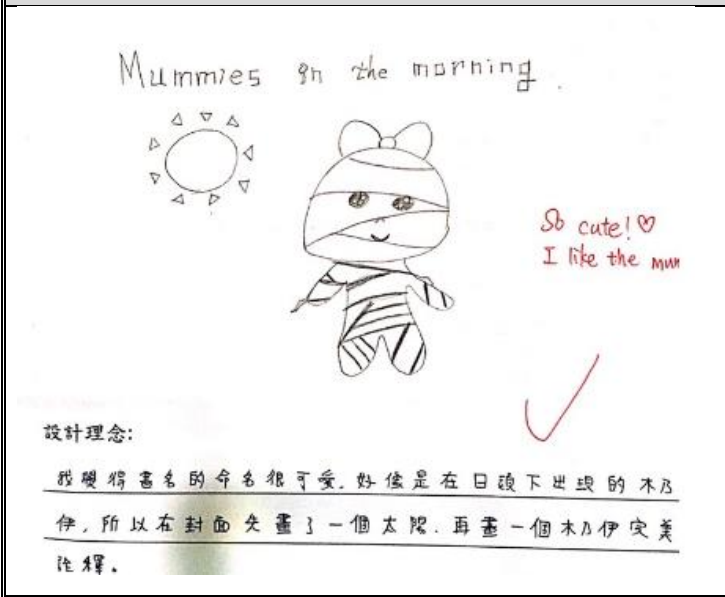 Mummies in the morning.
So cute! ♡
I like the mum
設計理念:
我覺得書名的命名很可愛.好像是在日頭下出現的木乃
伊,所以在封面先畫了一個太陽.再畫一個木乃伊完美
詮釋。